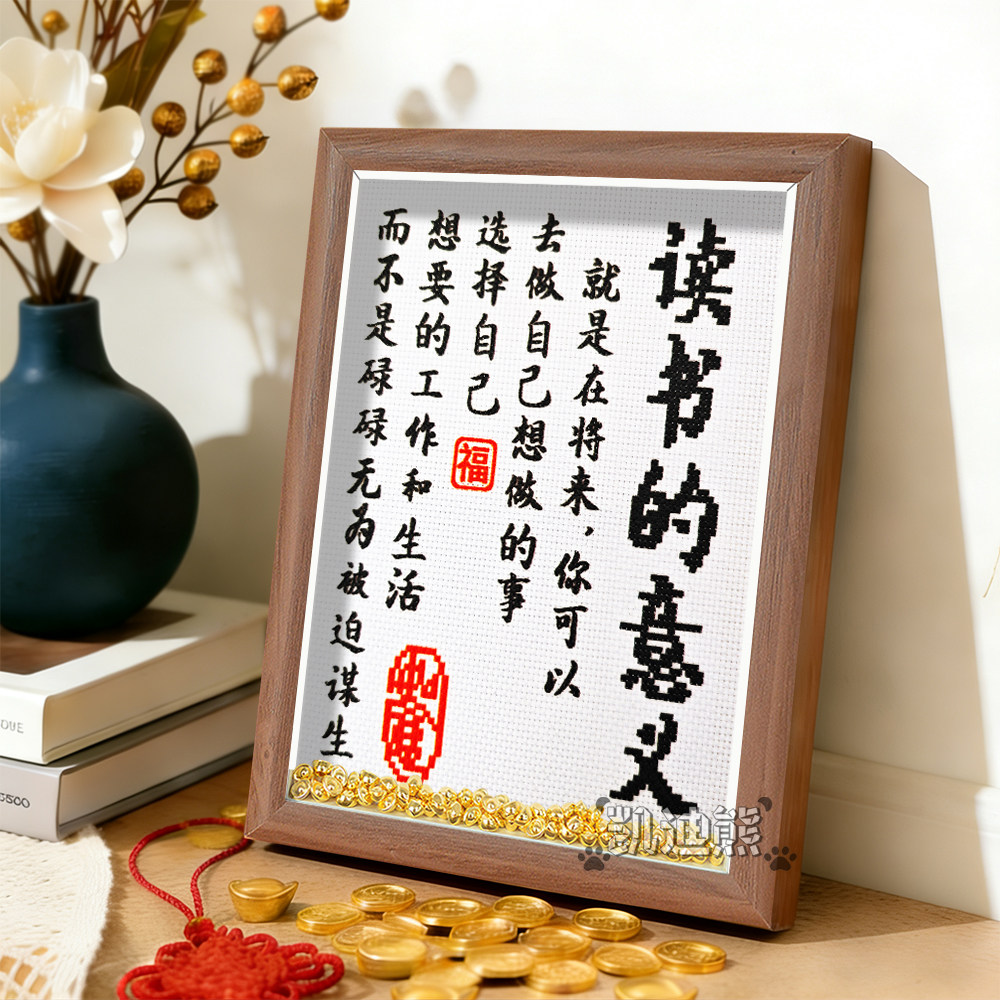 读书的意义
就是在将来，你可以
去做自己想做的事
选择自己
想要的工作和生活
而不是碌碌无为被迫谋生
福
凯迪熊